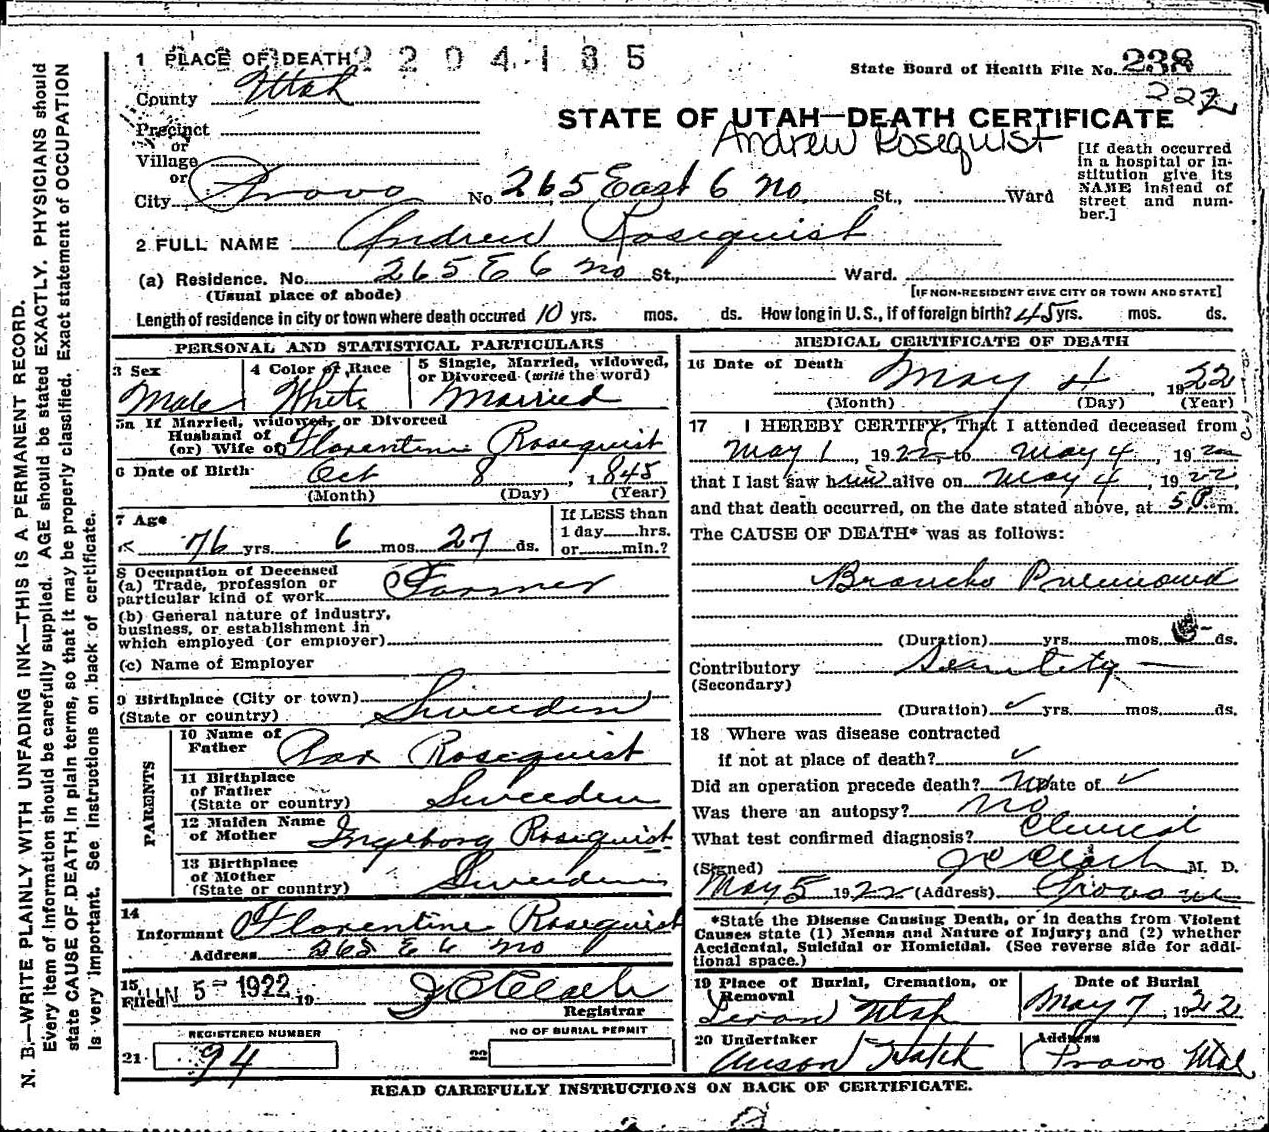 N. B.—WRITE PLAINLY WITH UNFADING INK—THIS IS A PERMANENT RECORD.
Every item of information should be carefully supplied. AGE should be stated EXACTLY. PHYSICIANS should
state CAUSE OF DEATH in plain terms, so that it may be properly classified. Exact statement of OCCUPATION
is very important. See instructions on back of certificate.
2204185
1 PLACE OF DEATH
State Board of Health File No. 238
227
County Utah
STATE OF UTAH—DEATH CERTIFICATE
Andrew Rosequist
Precinct
or
Village
or
City Provo No. 265 East 6 No. St., Ward
[If death occurred
in a hospital or in-
stitution give its
NAME instead of
street and num-
ber.]
2 FULL NAME Andrew Rosequist
(a) Residence. No. 265 E 6 No St., Ward.
(Usual place of abode) [IF NON-RESIDENT GIVE CITY OR TOWN AND STATE]
Length of residence in city or town where death occured 10 yrs. mos. ds. How long in U. S., if of foreign birth? 45 yrs. mos. ds.
PERSONAL AND STATISTICAL PARTICULARS
3 Sex 4 Color or Race 5 Single, Married, widowed,
or Divorced (write the word)
Male White Married
5a If Married, widowed, or Divorced
Husband of
(or) Wife of Florentine Rosequist
6 Date of Birth Oct 8, 1845
(Month) (Day) (Year)
7 Age If LESS than
1 day hrs.
76 yrs. 6 mos. 27 ds. or min.?
8 Occupation of Deceased
(a) Trade, profession or
particular kind of work Farmer
(b) General nature of industry,
business, or establishment in
which employed (or employer)
(c) Name of Employer
9 Birthplace (City or town)
(State or country) Sweeden
PARENTS
10 Name of
Father Rosequist
11 Birthplace
of Father
(State or country) Sweeden
12 Maiden Name
of Mother Ingeborg Rosequist
13 Birthplace
of Mother
(State or country) Sweeden
14
Informant Florentine Rosequist
Address 265 E 6 No
15
Filed JUN 5- 1922 19 J C Clark
Registrar
REGISTERED NUMBER NO OF BURIAL PERMIT
21 94 22
MEDICAL CERTIFICATE OF DEATH
16 Date of Death May 4 1922
(Month) (Day) (Year)
17 I HEREBY CERTIFY, That I attended deceased from
May 1, 1922, to May 4, 1922
that I last saw him alive on May 4, 1922,
and that death occurred, on the date stated above, at 5 P. m.
The CAUSE OF DEATH* was as follows:
Broncho Pneumonia
(Duration) yrs. mos. ds.
Contributory
(Secondary)
(Duration) yrs. mos. ds.
18 Where was disease contracted
if not at place of death?
Did an operation precede death? No Date of
Was there an autopsy? No
What test confirmed diagnosis? Clinical
(Signed) J C Clark M. D.
May 5 1922 (Address) Provo
*State the Disease Causing Death, or in deaths from Violent
Causes state (1) Means and Nature of Injury; and (2) whether
Accidental, Suicidal or Homicidal. (See reverse side for addi-
tional space.)
19 Place of Burial, Cremation, or
Removal
Date of Burial
Levan Utah May 7, 1922
20 Undertaker Address
Anson Hatch Provo Utah
READ CAREFULLY INSTRUCTIONS ON BACK OF CERTIFICATE.